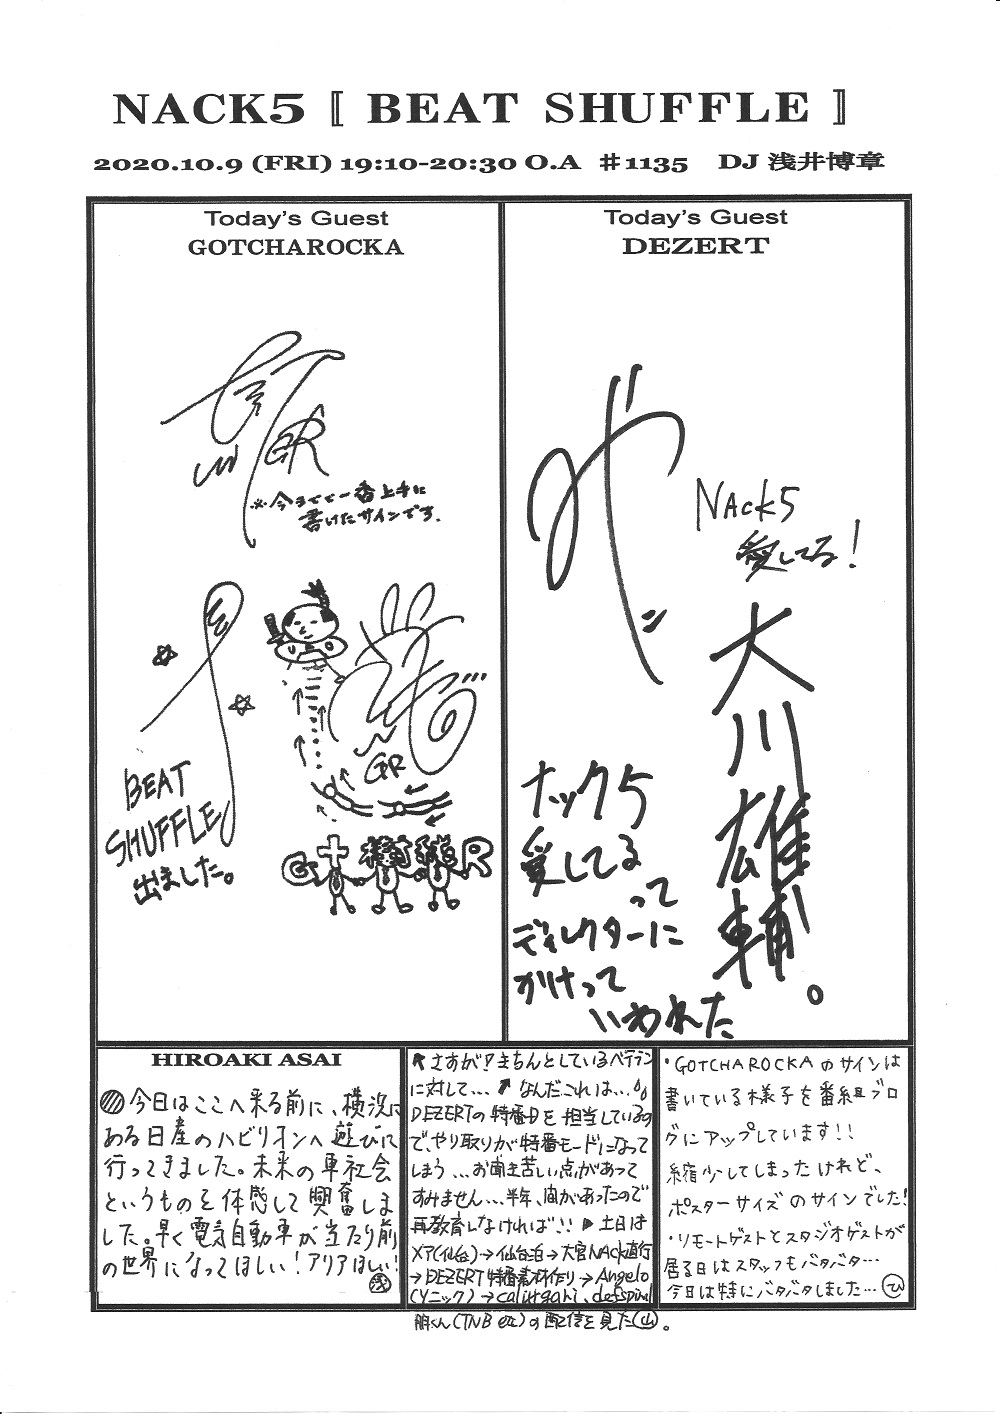 NACK5 〚 BEAT SHUFFLE 〛
2020.10.9 (FRI) 19:10-20:30 O.A ♯1135 DJ 浅井博章
Today's Guest
GOTCHAROCKA
GR
※今までで一番上手に
書けたサインです.
BEAT
SHUFFLE
出ました。
GR
G十樹緑R
Today's Guest
DEZERT
NAck5
愛してる!
大川雄輔。
ナック5
愛してる
って
ディレクターに
かけって
いわれた
HIROAKI ASAI
今日はここへ来る前に、横浜に
ある日産のパビリオンへ遊びに
行ってきました。未来の車社会
というものを体感して興奮しま
した。早く電気自動車が当たり前
の世界になってほしい!アリアほしい!
浅
さすが?きちんとしているベテラン
に対して… なんだこれは…
DEZERTの特番Dを担当しているの
で、やり取りが特番モードになって
しまう…お聞き苦しい点があって
すみません…半年、間があったので
再教育しなければ!! ▶土日は
メア(仙台)→仙台泊→大宮NACK直行
→DEZERT特番素材作り→Angelo
(ソニック)→cali≠gari、defspiral
朋くん(TNB etc)の配信を見た(山)。
・GOTCHAROCKAのサインは
書いている様子を番組ブロ
グにアップしています!!
縮少してしまったけれど、
ポスターサイズのサインでした!
・リモートゲストとスタジオゲストが
居る日はスタッフもバタバタ…
今日は特にバタバタしました…(ひ)